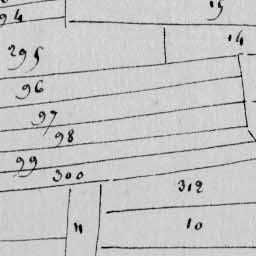 94
15
14
295
96
97
98
99
300
312
11
10